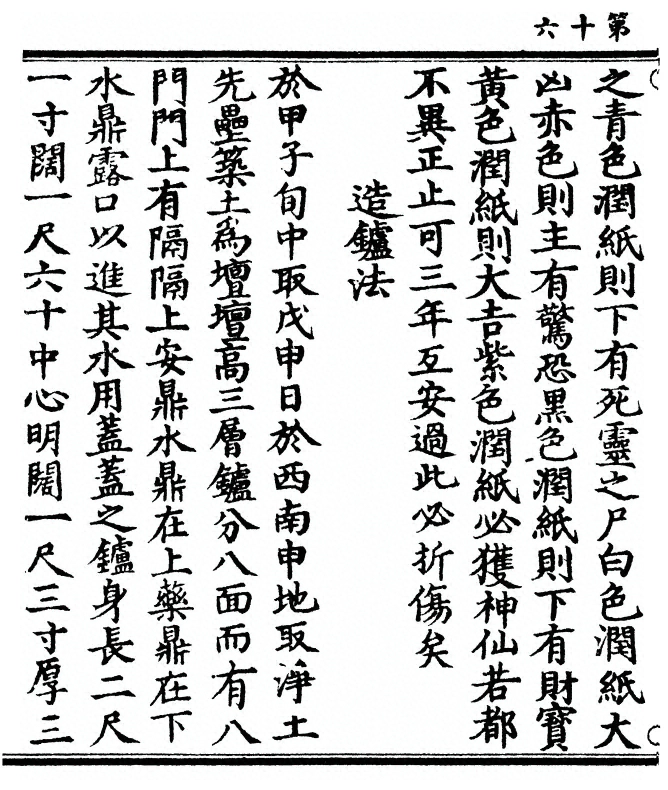 第十六
之青色潤紙則下有死靈之尸白色潤紙大
凶赤色則主有驚恐黑色潤紙則下有財寶
黃色潤紙則大吉紫色潤紙必獲神仙若都
不異正止可三年互安過此必折傷矣
造鑪法
於甲子旬中取戊申日於西南申地取淨土
先壘築土為壇壇高三層鑪分八面而有八
門門上有隔隔上安鼎水鼎在上藥鼎在下
水鼎露口以進其水用蓋蓋之鑪身長二尺
一寸闊一尺六十中心明闊一尺三寸厚三